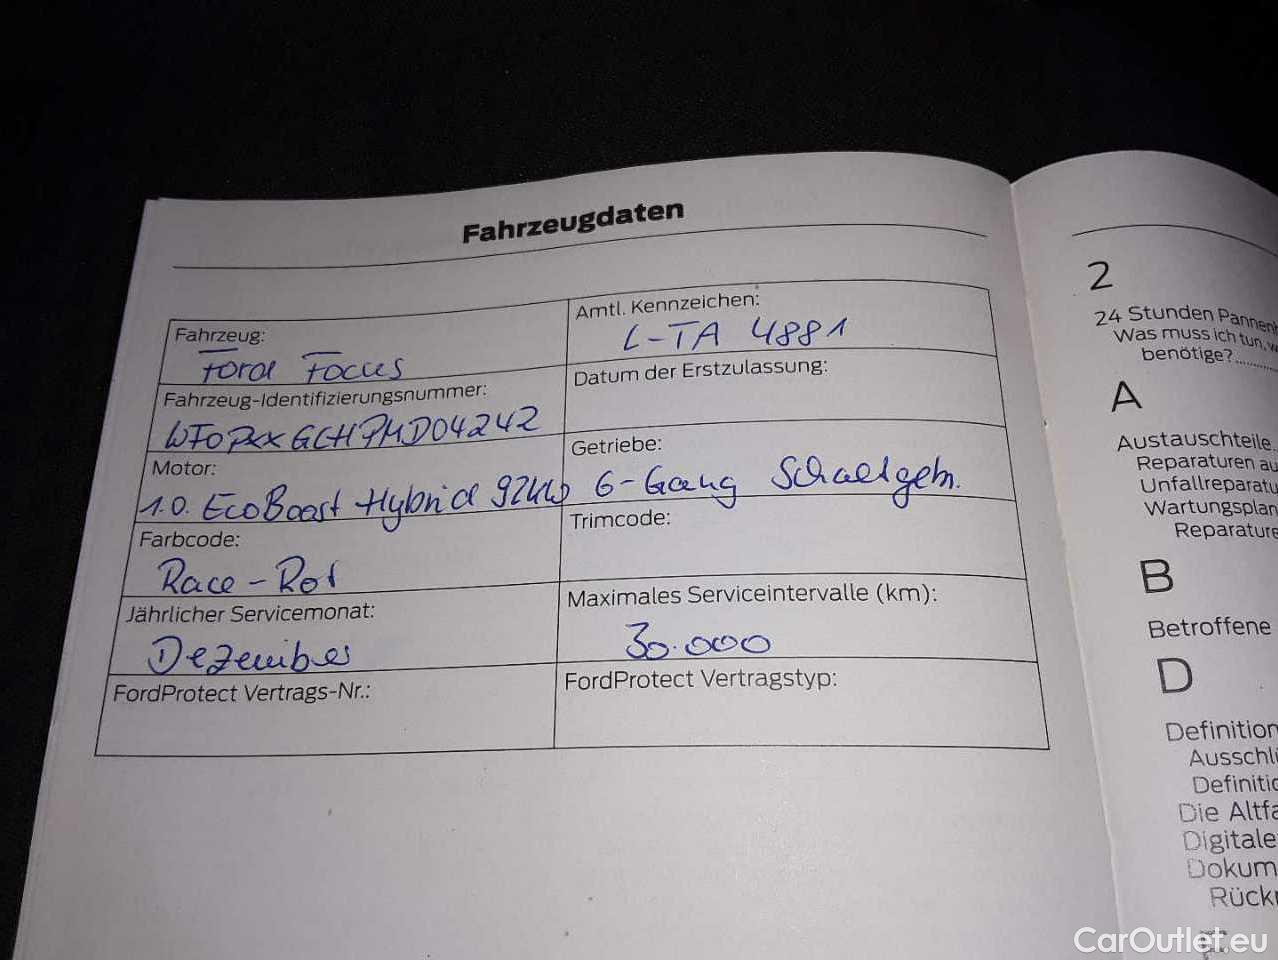 Fahrzeugdaten
Fahrzeug:
Ford Focus
Amtl. Kennzeichen:
L-TA 4881
Fahrzeug-Identifizierungsnummer:
WF0PXXGCHPMD04242
Datum der Erstzulassung:
Motor:
1.0. EcoBoost Hybrid 92kW
Getriebe:
6-Gang Schaltgetr.
Farbcode:
Race-Rot
Trimcode:
Jährlicher Servicemonat:
Dezember
Maximales Serviceintervalle (km):
30.000
FordProtect Vertrags-Nr.:
FordProtect Vertragstyp:
2
24 Stunden
Was muss ich tun,
benötige?
A
Austauschteile
Reparaturen
Wartungsplan
B
Betroffene
D
Die
CarOutlet.eu